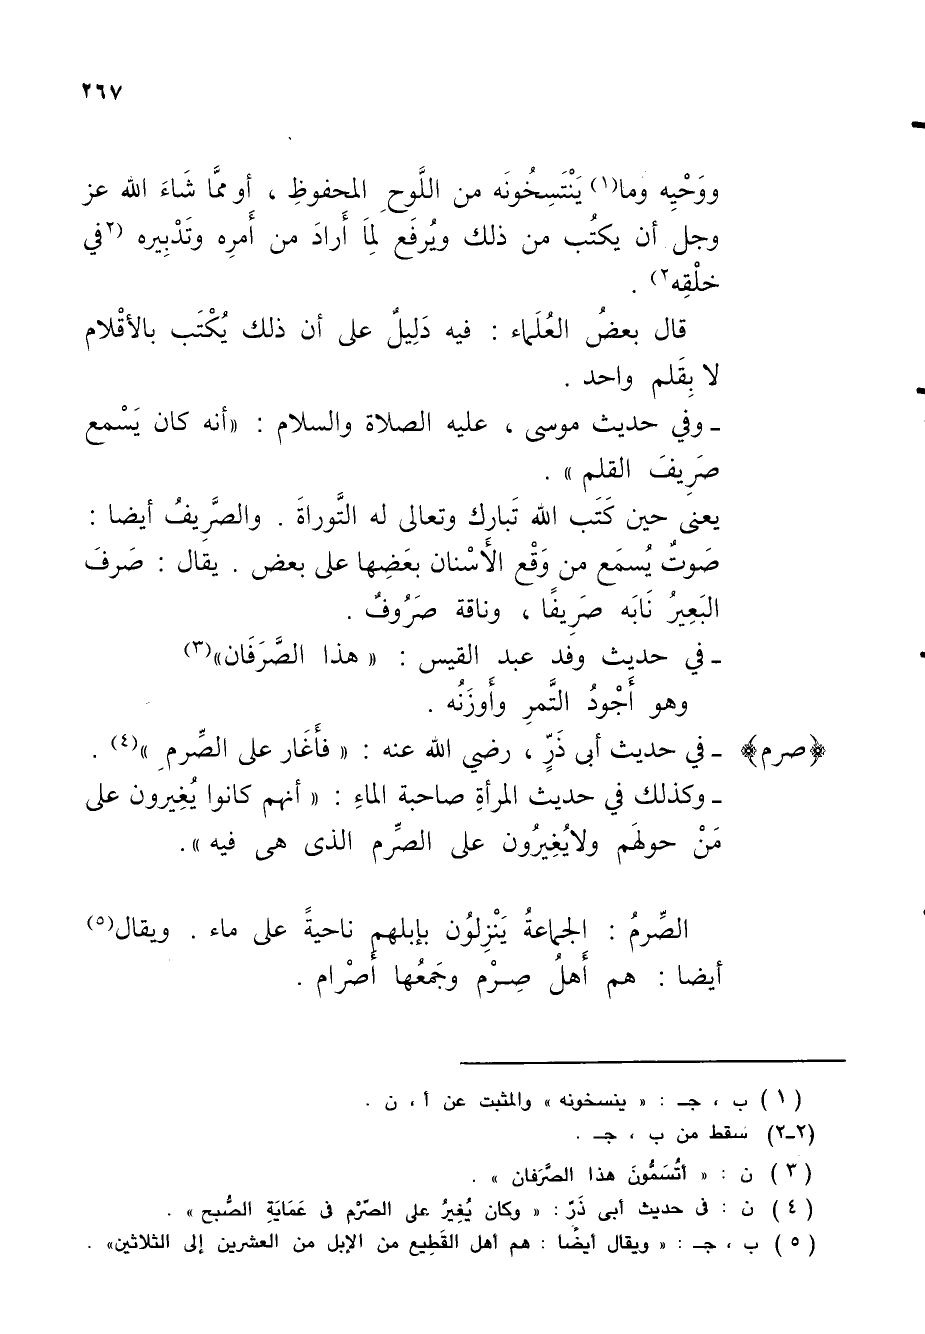 ٢٦٧
ووَحْيِه وما(١) يَنْتَسِخُونَه من اللَّوحِ المحفوظِ ، أو ممَّا شَاءَ الله عز
وجل أن يكتُب من ذلك ويُرفَع لِمَا أَرادَ من أَمرِه وتَدْبِيره (٢في
خلْقِه٢) .
قال بعضُ العُلَماء : فيه دَلِيلٌ على أن ذلك يُكْتَب بالأقْلام
لا بِقَلم واحد .
ـ وفي حديث موسى ، عليه الصلاة والسلام : «أنه كان يَسْمع
صَرِيفَ القلم » .
يعنى حين كَتَب الله تَبارك وتعالى له التَّوراةَ . والصَّرِيفُ أيضا :
صَوتٌ يُسمَع من وَقْع الأَسْنان بعَضِها على بعض . يقال : صَرفَ
البَعِيرُ نَابَه صَرِيفًا ، وناقة صَرُوفٌ .
ـ في حديث وفد عبد القيس : « هذا الصَّرَفَان»(٣)
وهو أَجْودُ التَّمرِ وأَوزَنُه .
﴿صرم﴾ ـ في حديث أبى ذَرٍّ ، رضي الله عنه : « فأَغَار على الصِّرمِ »(٤) .
ـ وكذلك في حديث المرأةِ صاحبة الماءِ : « أنهم كانوا يُغِيرون على
مَنْ حولهَم ولايُغِيرُون على الصِّرم الذى هى فيه ».
الصِّرمُ : الجماعةُ يَنْزِلوُن بإبلهم ناحيةً على ماء . ويقال(٥)
أيضا : هم أَهلُ صِرْم وجَمعُها أَصْرام .
(١) ب ، جـ : « ينسخونه » والمثبت عن أ ، ن .
(٢ـ٢) سقط من ب ، جـ .
(٣) ن : « أتُسَمُّونَ هذا الصَّرَفان » .
(٤) ن : فى حديث أبى ذَرّ : « وكان يُغِيرُ على الصِّرْم فى عَمَايَةِ الصُّبح » .
(٥) ب ، جـ : « ويقال أيضًا : هم أهل القَطِيع من الإبل من العشرين إلى الثلاثين» .